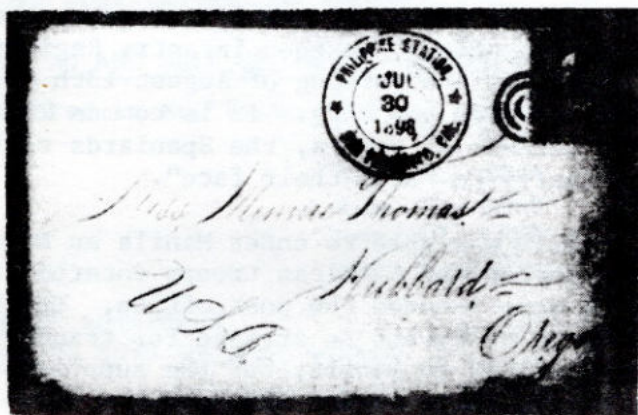 PHILIPPINE STATION,
JUL
30
1898
SAN FRANCISCO, CAL.
Miss Minnie Thomas
Hubbard,
Oreg
U.S.A.